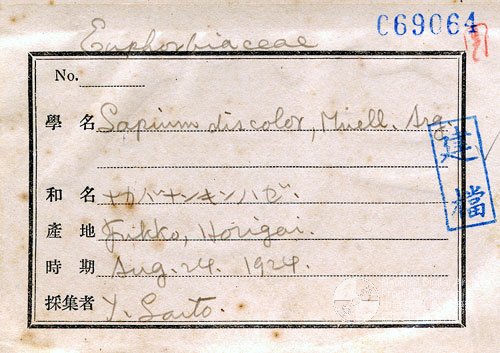 C69064
Euphorbiaceae
No.
學名 Sapium discolor, Muell. Arg.
和名 ナカバナンキンハゼ.
產地 Fukko, Horigai.
時期 Aug. 24. 1924.
採集者 Y. Saito.
建檔